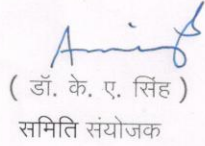 ( डॉ. के. ए. सिंह )
समिति संयोजक